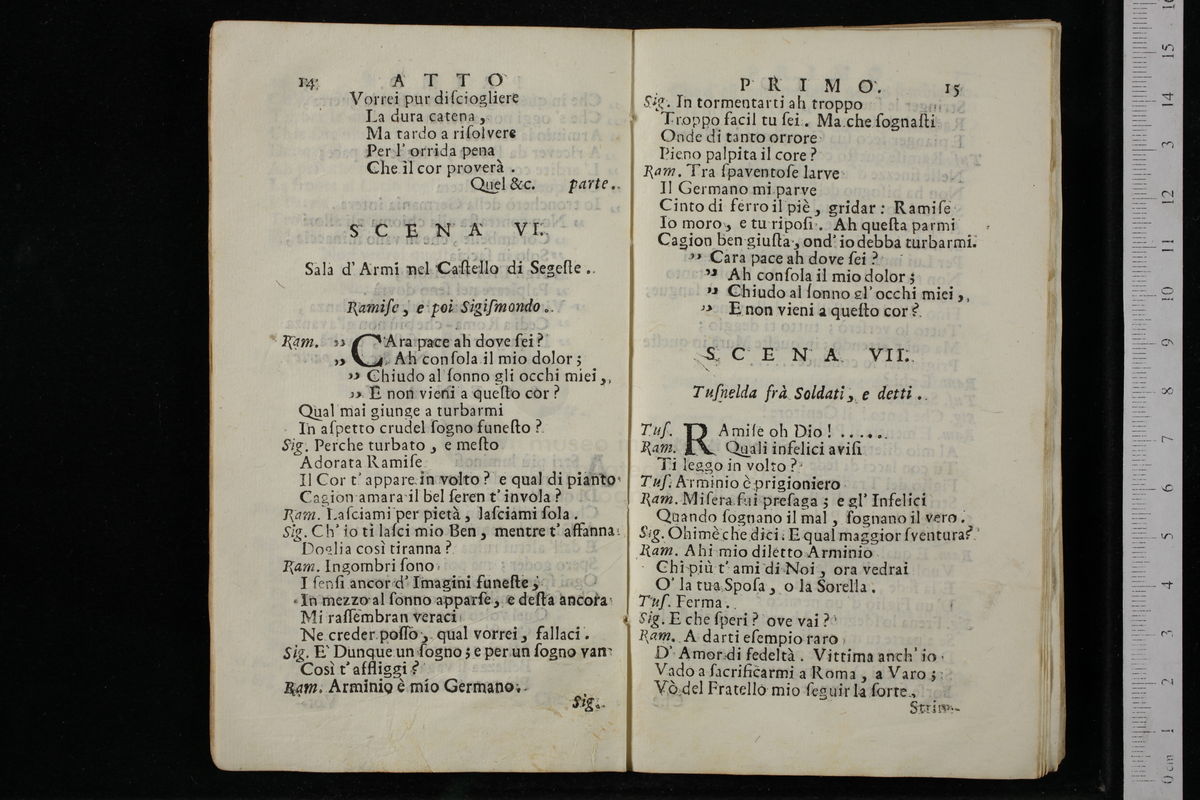 14 ATTO
Vorrei pur diſciogliere
La dura catena,
Ma tardo a riſolvere
Per l' orrida pena
Che il cor proverà.
Quel &c. parte.
SCENA VI.
Sala d' Armi nel Caſtello di Segeſte.
Ramiſe, e poi Sigiſmondo.
Ram. ,, CAra pace ah dove ſei?
,, Ah conſola il mio dolor;
,, Chiudo al ſonno gli occhi miei,
,, E non vieni a queſto cor?
Qual mai giunge a turbarmi
In aſpetto crudel ſogno funeſto?
Sig. Perche turbato, e meſto
Adorata Ramiſe
Il Cor t' appare in volto? e qual di pianto
Cagion amara il bel ſeren t' invola?
Ram. Laſciami per pietà, laſciami ſola.
Sig. Ch' io ti laſci mio Ben, mentre t' affanna
Doglia così tiranna?
Ram. Ingombri ſono
I ſenſi ancor d' Imagini funeſte;
In mezzo al ſonno apparſe, e deſta ancora
Mi raſſembran veraci
Ne creder poſſo, qual vorrei, fallaci.
Sig. E' Dunque un ſogno; e per un ſogno van
Così t' affliggi?
Ram. Arminio è mio Germano.
Sig.
PRIMO. 15
Sig. In tormentarti ah troppo
Troppo facil tu ſei. Ma che ſognaſti
Onde di tanto orrore
Pieno palpita il core?
Ram. Tra ſpaventoſe larve
Il Germano mi parve
Cinto di ferro il piè, gridar: Ramiſe
Io moro, e tu ripoſi. Ah queſta parmi
Cagion ben giuſta, ond' io debba turbarmi.
,, Cara pace ah dove ſei?
,, Ah conſola il mio dolor;
,, Chiudo al ſonno gl' occhi miei,
,, E non vieni a queſto cor?
SCENA VII.
Tuſnelda frà Soldati, e detti.
Tuſ. RAmiſe oh Dio! ......
Ram. Quali infelici aviſi
Ti leggo in volto?
Tuſ. Arminio è prigioniero
Ram. Miſera fui preſaga; e gl' Infelici
Quando ſognano il mal, ſognano il vero.
Sig. Ohimè che dici. E qual maggior ſventura?
Ram. Ahi mio diletto Arminio
Chi più t' ami di Noi, ora vedrai
O' la tua Spoſa, o la Sorella.
Tuſ. Ferma.
Sig. E che ſperi? ove vai?
Ram. A darti eſempio raro
D' Amor di fedeltà. Vittima anch' io
Vado a ſacrificarmi a Roma, a Varo;
Vò del Fratello mio ſeguir la ſorte,
Strin-